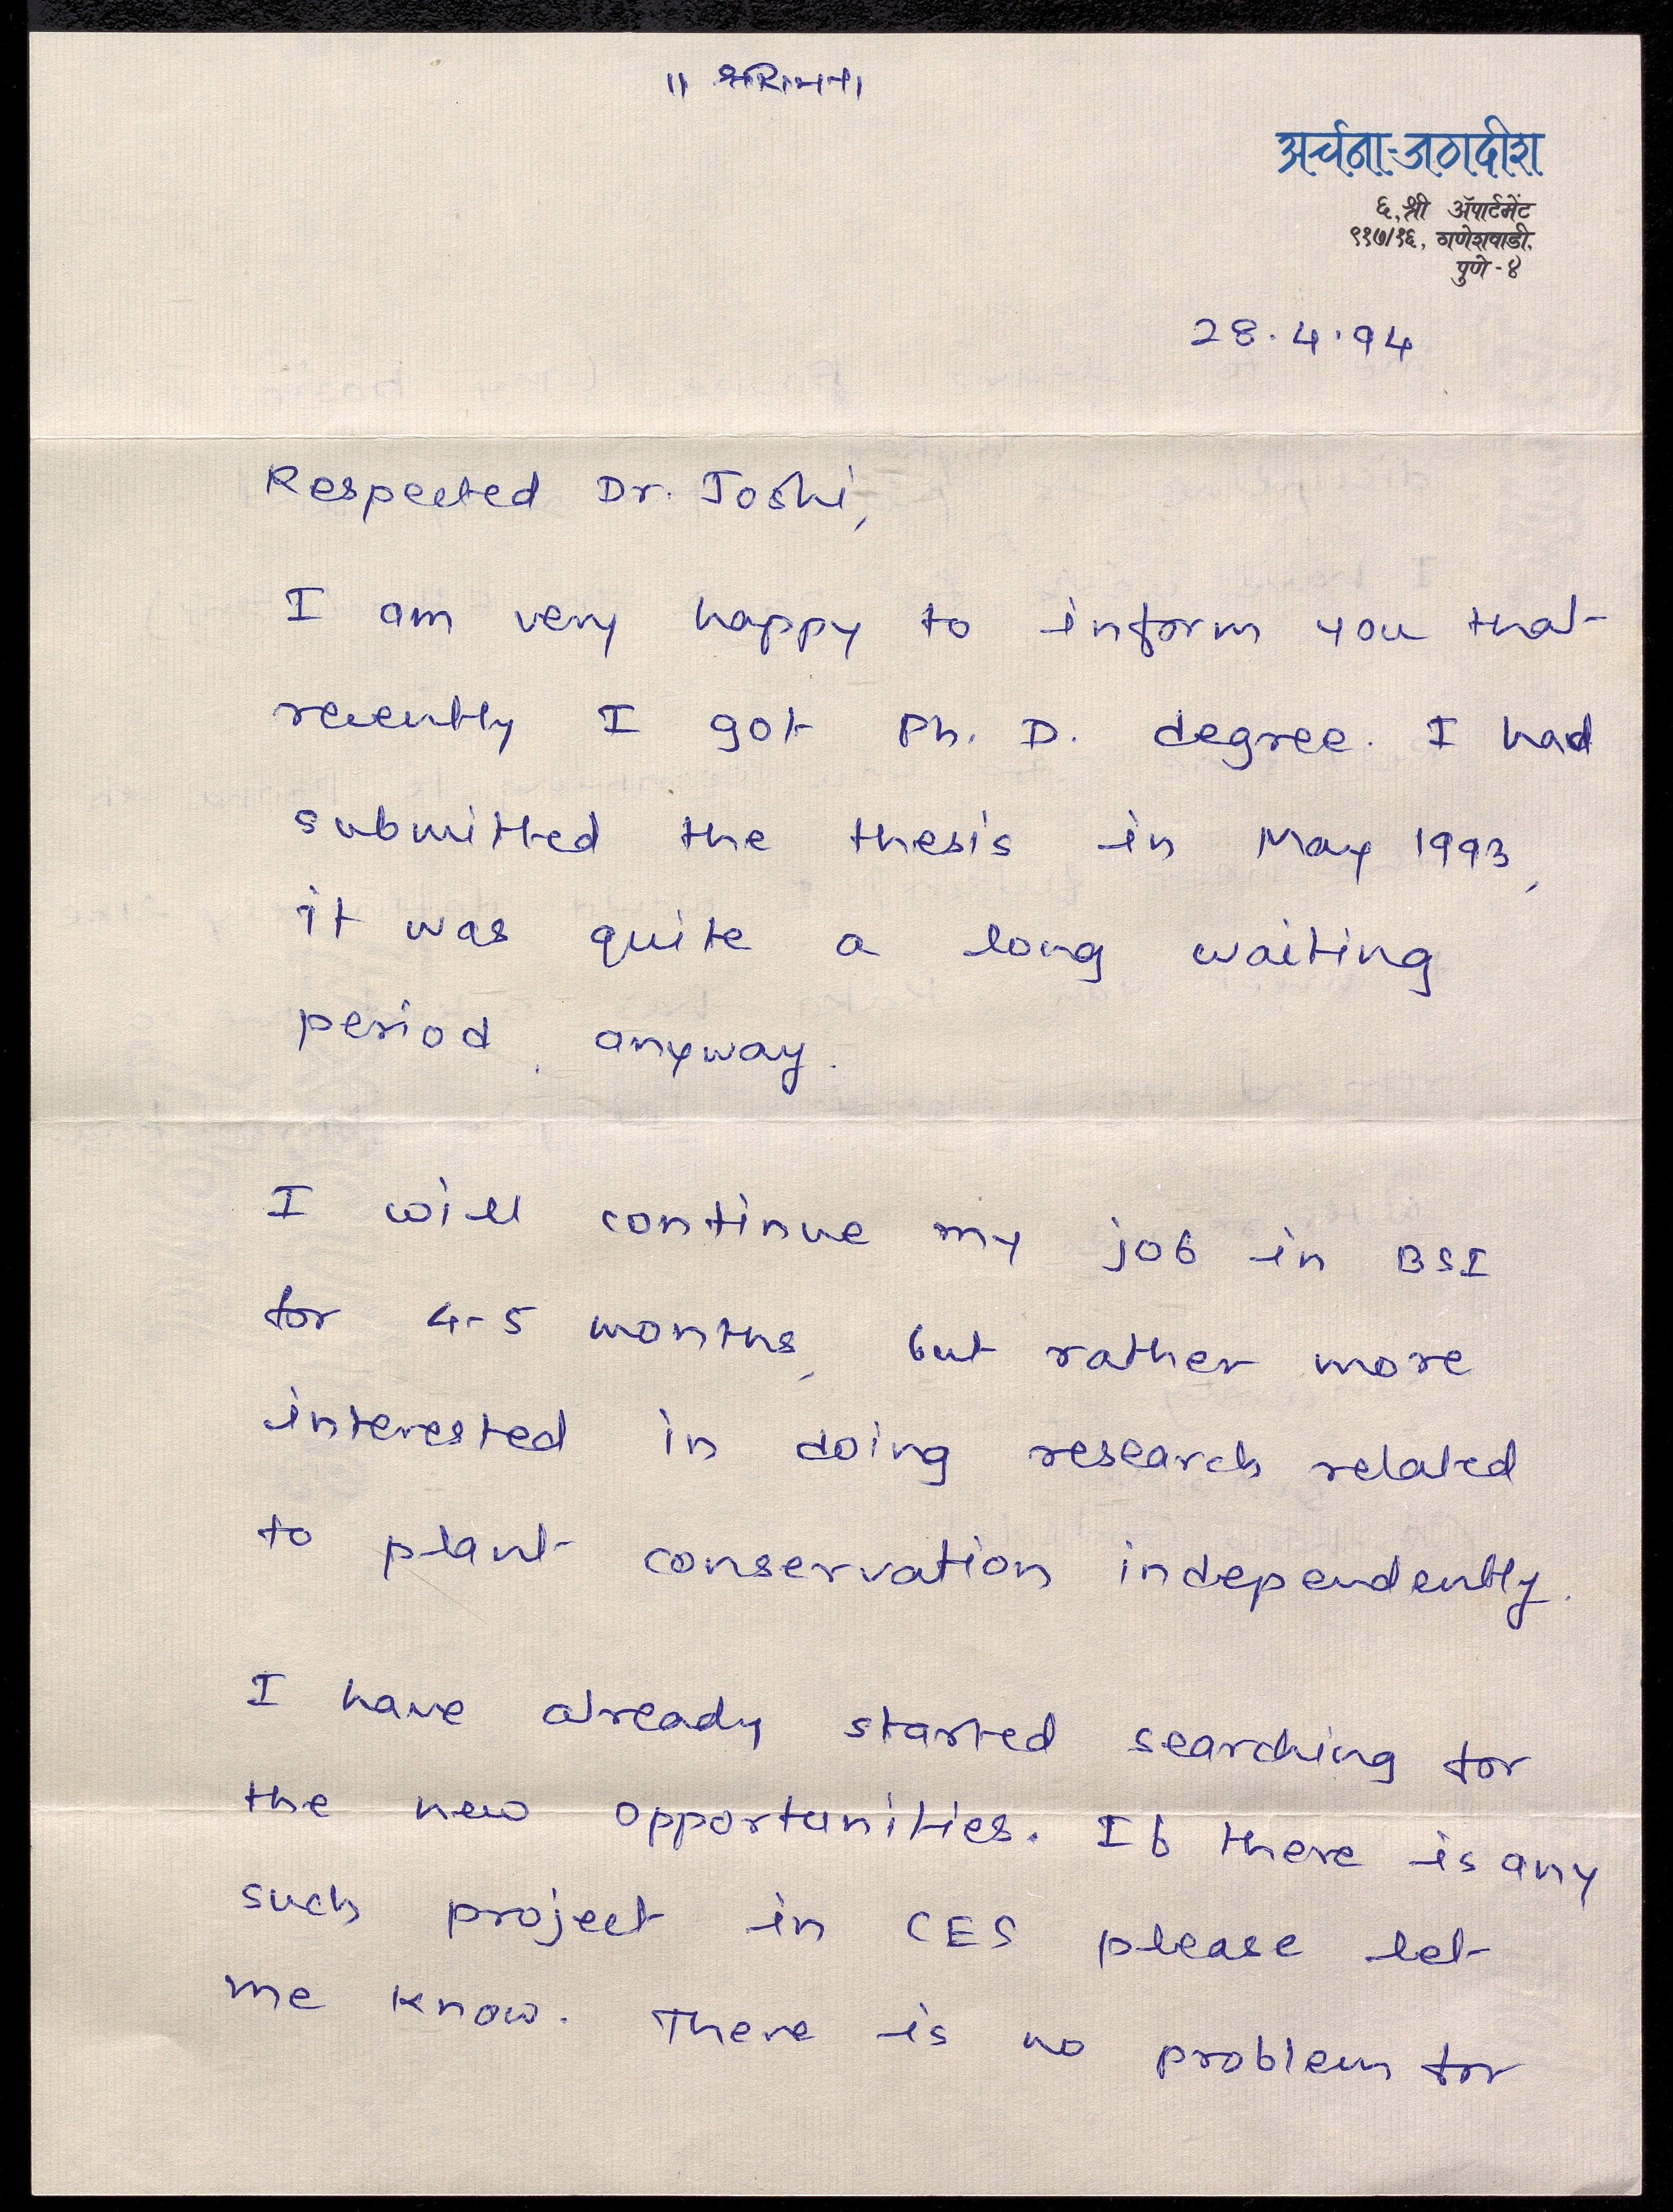 अर्चना-जगदीश
६, श्री ॲपार्टमेंट
९१७/१६, गणेशवाडी,
पुणे-४
28.4.94
Respected Dr. Joshi,
I am very happy to inform you that
recently I got Ph. D. degree. I had
submitted the thesis in May 1993,
it was quite a long waiting
period, anyway.
I will continue my job in BSI
for 4-5 months, but rather more
interested in doing research related
to plant conservation independently.
I have already started searching for
the new opportunities. If there is any
such project in CES please let
me know. There is no problem for